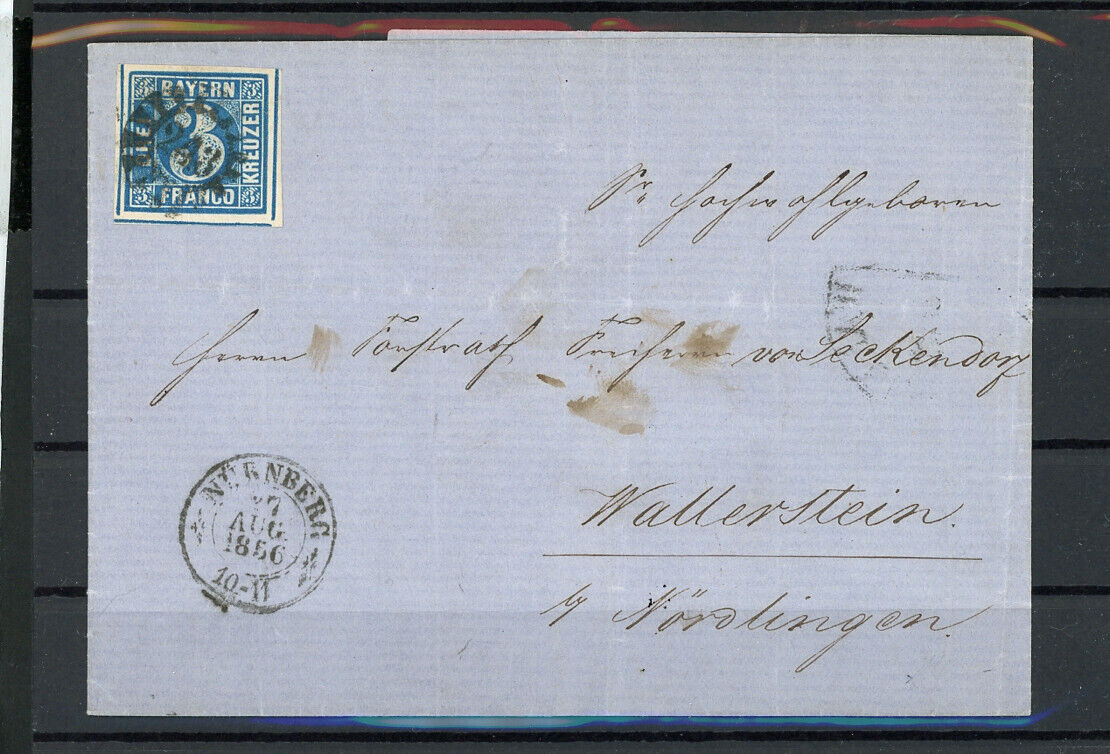 BAYERN
3
KREUZER
FRANCO
Sr Hochwohlgeboren
Herrn Forstrath Freiherrn von Seckendorf
NÜRNBERG
27
AUG.
1856
10-11
Wallerstein.
b/ Nördlingen.